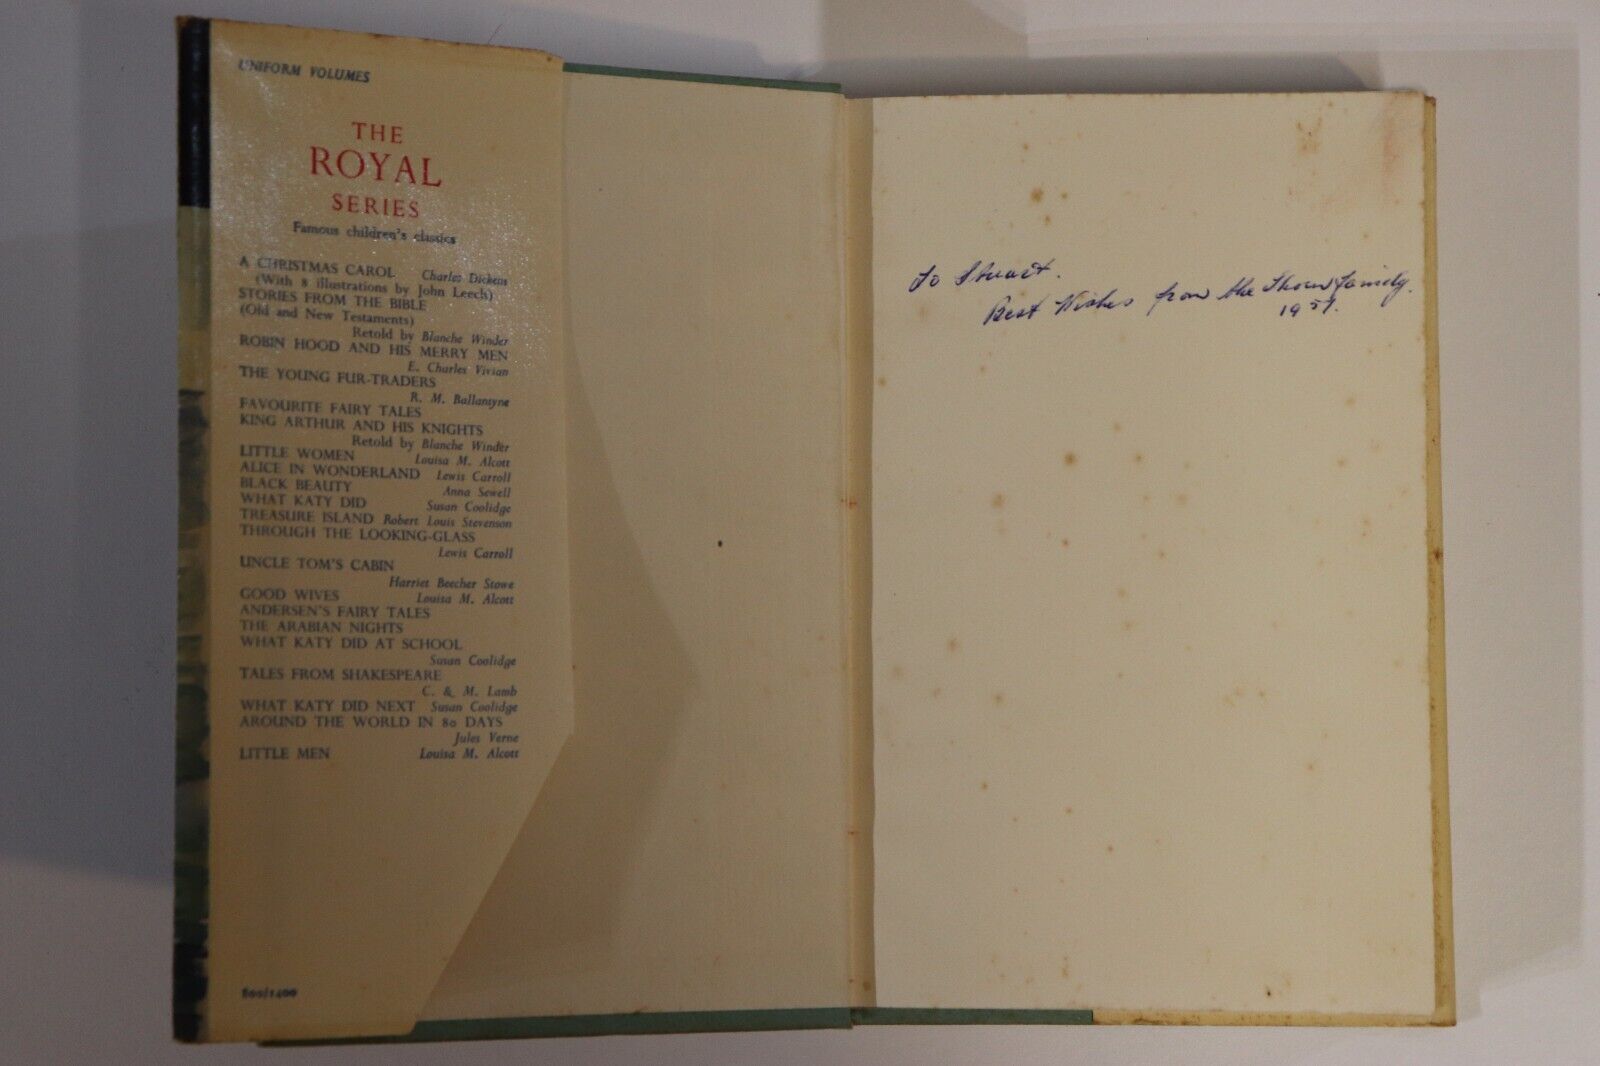 UNIFORM VOLUMES
THE
ROYAL
SERIES
Famous children's classics
A CHRISTMAS CAROL Charles Dickens
(With 8 illustrations by John Leech)
STORIES FROM THE BIBLE
(Old and New Testaments)
Retold by Blanche Winder
ROBIN HOOD AND HIS MERRY MEN
E. Charles Vivian
THE YOUNG FUR-TRADERS
R. M. Ballantyne
FAVOURITE FAIRY TALES
KING ARTHUR AND HIS KNIGHTS
Retold by Blanche Winder
LITTLE WOMEN Louisa M. Alcott
ALICE IN WONDERLAND Lewis Carroll
BLACK BEAUTY Anna Sewell
WHAT KATY DID Susan Coolidge
TREASURE ISLAND Robert Louis Stevenson
THROUGH THE LOOKING-GLASS
Lewis Carroll
UNCLE TOM'S CABIN
Harriet Beecher Stowe
GOOD WIVES Louisa M. Alcott
ANDERSEN'S FAIRY TALES
THE ARABIAN NIGHTS
WHAT KATY DID AT SCHOOL
Susan Coolidge
TALES FROM SHAKESPEARE
C. & M. Lamb
WHAT KATY DID NEXT Susan Coolidge
AROUND THE WORLD IN 80 DAYS
Jules Verne
LITTLE MEN Louisa M. Alcott
800/1400
To Stuart.
Best Wishes from the family.
1957.